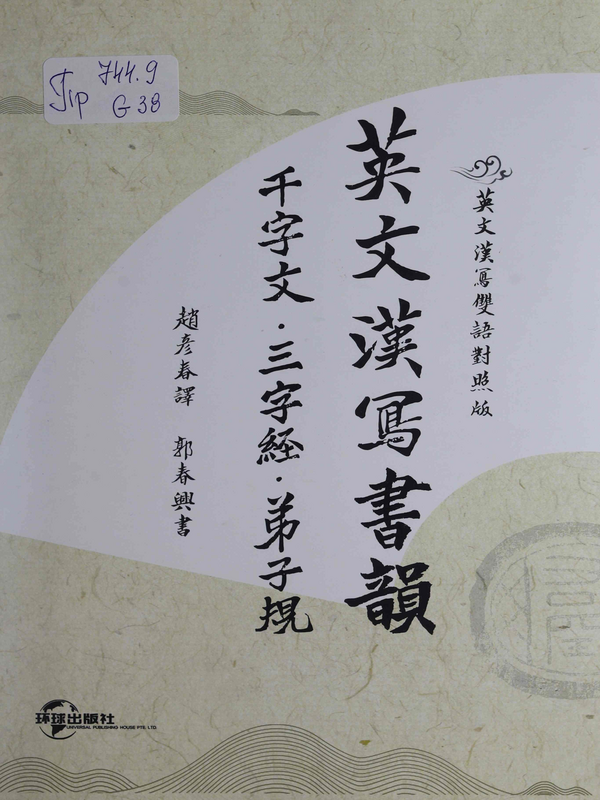 Jip 744.9
G 38
英文漢寫雙語對照版
英文漢寫書韻
千字文·三字經·弟子規
趙彥春譯 郭春興書
环球出版社
UNIVERSAL PUBLISHING HOUSE PTE. LTD.